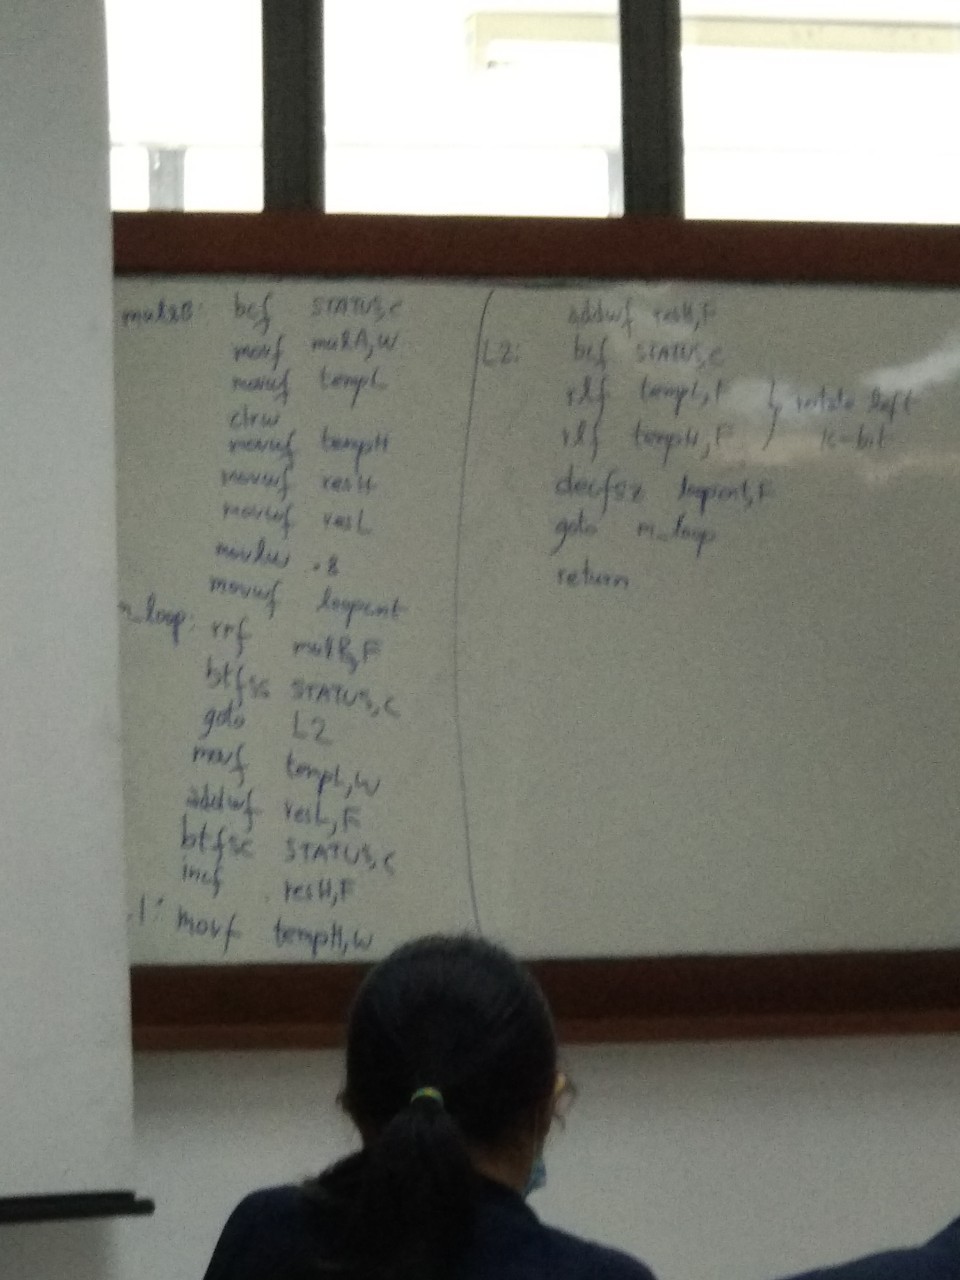 mul8B: bcf STATUS,C
movf mulA,W
movwf tempL
clrw
movwf tempH
movwf resH
movwf resL
movlw .8
movwf loopcnt
m_loop: rrf mulB,F
btfss STATUS,C
goto L2
movf tempL,W
addwf resL,F
btfsc STATUS,C
incf resH,F
movf tempH,W
addwf resH,F
L2: bcf STATUS,C
rlf tempL,F } rotate left
rlf tempH,F 16-bit
decfsz loopcnt,F
goto m_loop
return